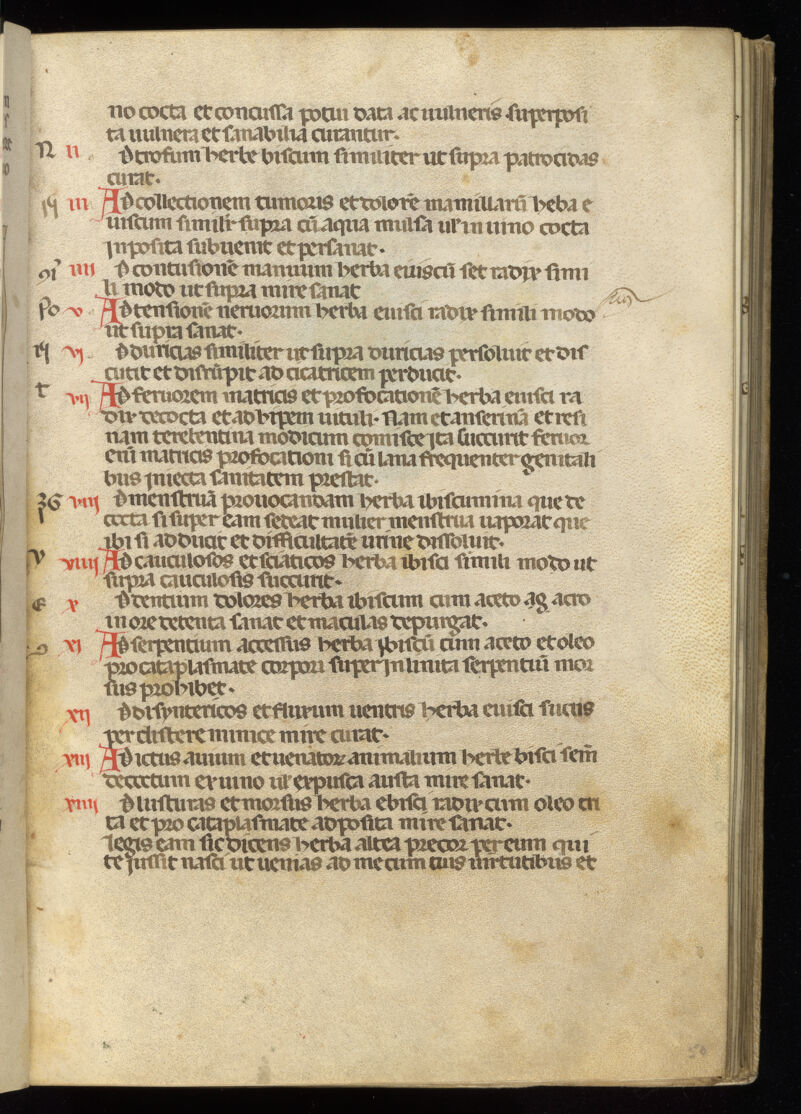 no cocta et concussa potui data ac uulneris superposi
ta uulnera et sanabilia curantur.
N II Dtrofum herbe biscum similiter ut supra patrocidas
curat.
III Ad collectionem tumoris et dolorē mamillarū heba e
uiscum simili supra cū aqua mulsa ul' in uino cocta
inposita subuenit et persanat.
IIII D contusionē manuum herba euiscū set radix simi
li modo ut supra mire sanat
po V Ad tensionē neruorum herba euisci radix simili modo
ut supra sanat.
VI D duricias similiter ut supra duricias persoluit et dis
cutit et disrūpit ad cicatricem perducit.
t VII Ad feruorem matricis et profocationē herba euisci ra
dix decocta et ad hipem uituli. Nam et anserinā et resi
nam terebentina modicum comisce ita succurit feruor
etiī matricis profocationi si cū lana frequenter genitali
bus iniecta sanitatem prestat.
VIII D menstruā prouocandam herba ibiscumina que de
cocta si super eam sedeat mulier menstrua uaporat que
ibi si adducit et difficultatē urine dissoluit.
v VIIII Ad cauculosos et sciaticos herba ibisci simili modo ut
supra cauculosis succurit.
e X D dentium dolores herba ibiscum cum aceto ag acro
in ore detenta sanat et maculas depurgat.
XI Ad serpentium accessus herba ybiscū cum aceto et oleo
pro cataplasmate corpori super inlinita serpentiū mor
sus prohibet.
XII D disyntericos et fluxum uentris herba euisci sucus
per clistere minice mire curat.
XIII Ad ictus auium et uenator animalium herbe bisci sem̄
decoctum ex uino ul' expusca austa mire sanat.
XIIII D lusturas et morsus herba ebisci radix cum oleo tri
ta et pro cataplasmate adposita mire sanat.
legis eam sic dicens herba altea precor per eum qui
te iussit nasci ut uenias ad me cum tuis uirtutibus et
50